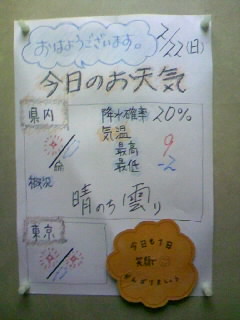 おはようございます。
2/22(日)
今日のお天気
県内
降水確率 20%
気温
最高 9
最低 -2
概況
晴のち曇り
東京
今日も1日
笑顔で
がんばりましょう